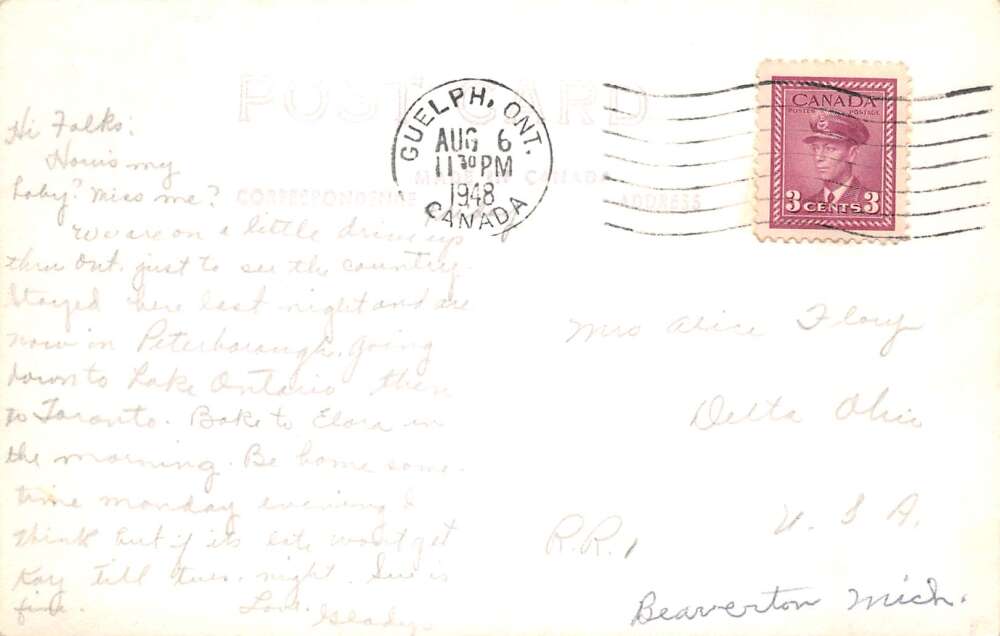 POST CARD
MADE IN CANADA
CORRESPONDENCE
ADDRESS
GUELPH, ONT.
AUG 6
11 30 PM
1948
CANADA
CANADA
POSTES POSTAGE
3 CENTS 3
Hi Folks.
How's my
baby? Miss me?
We are on a little drive up
thru Ont. just to see the country.
Stayed here last night and are
now in Peterborough. Going
down to Lake Ontario then
to Toronto. Bake to Elora in
the morning. Be home some-
time monday evening I
think but if its late wont get
Kay till tues. night. Sue is
fine. Love. Gladys
Mrs Alice Flory
Delta Ohio
U. S. A.
R.R. 1
Beaverton Mich.